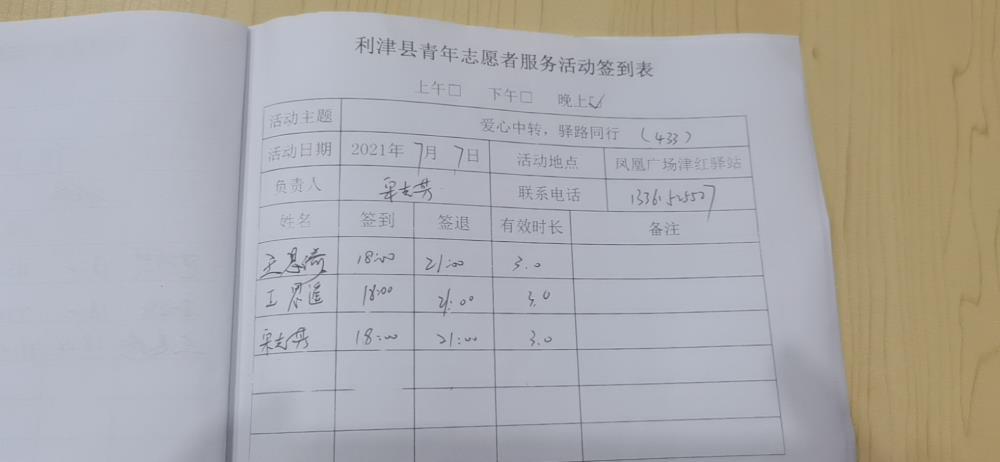 利津县青年志愿者服务活动签到表
上午□ 下午□ 晚上☑
活动主题 爱心中转，驿路同行 (433)
活动日期 2021年7月7日 活动地点 凤凰广场津红驿站
负责人 联系电话
姓名 签到 签退 有效时长 备注
王 18:00 21:00 3.0
18:00 21:00 3.0
18:00 21:00 3.0